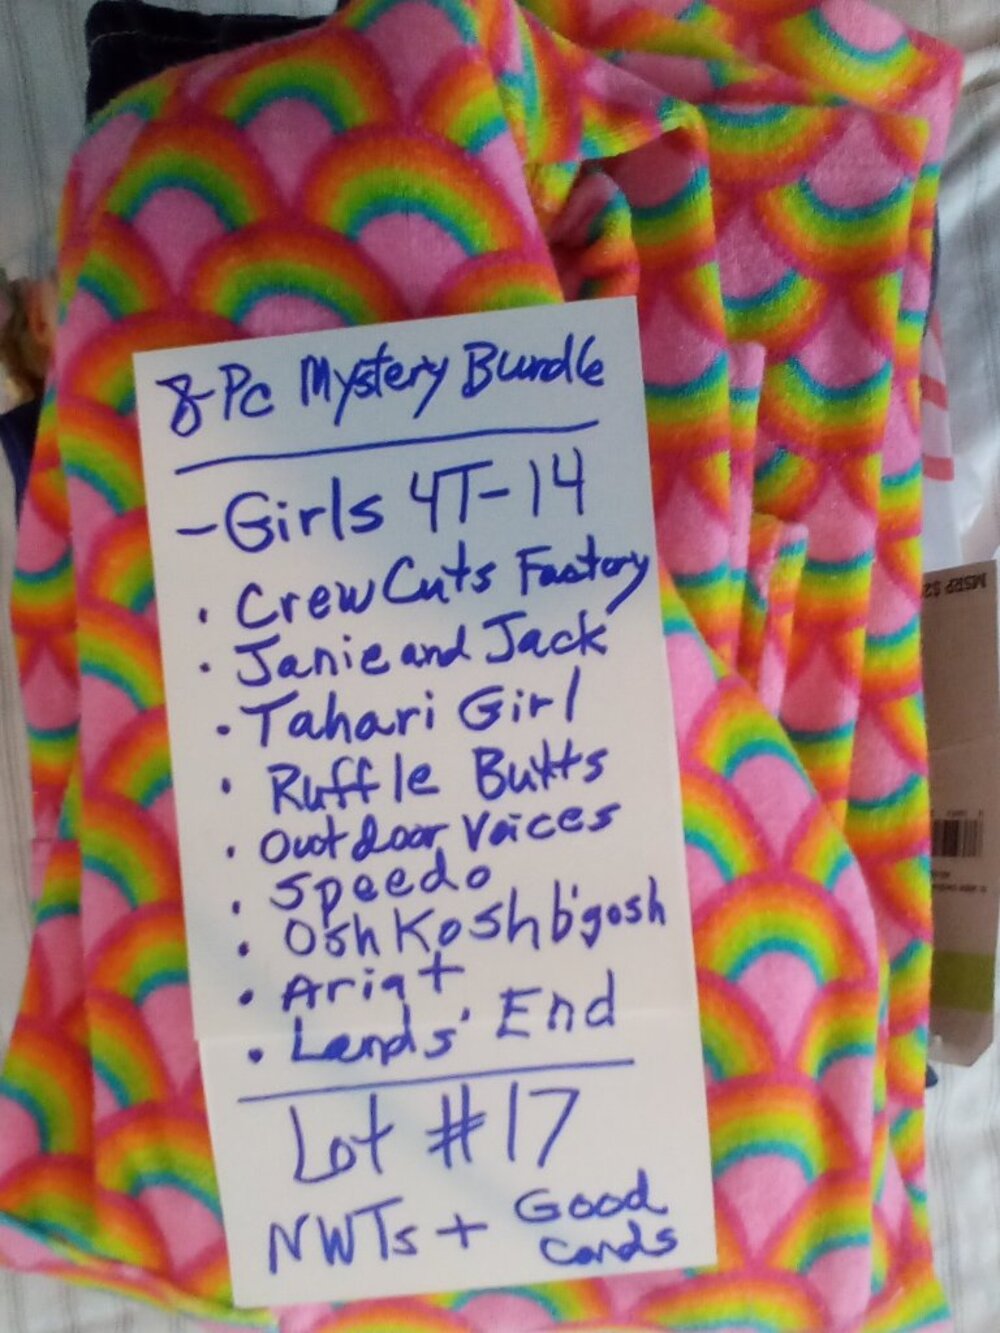 8-Pc Mystery Bundle
- Girls 4T-14
• Crew Cuts Factory
• Janie and Jack
• Tahari Girl
• Ruffle Butts
• Outdoor Voices
• Speedo
• OshKosh b'gosh
• Ariat
• Lands' End
Lot #17
NWTs + Good
Conds
MSRP $2